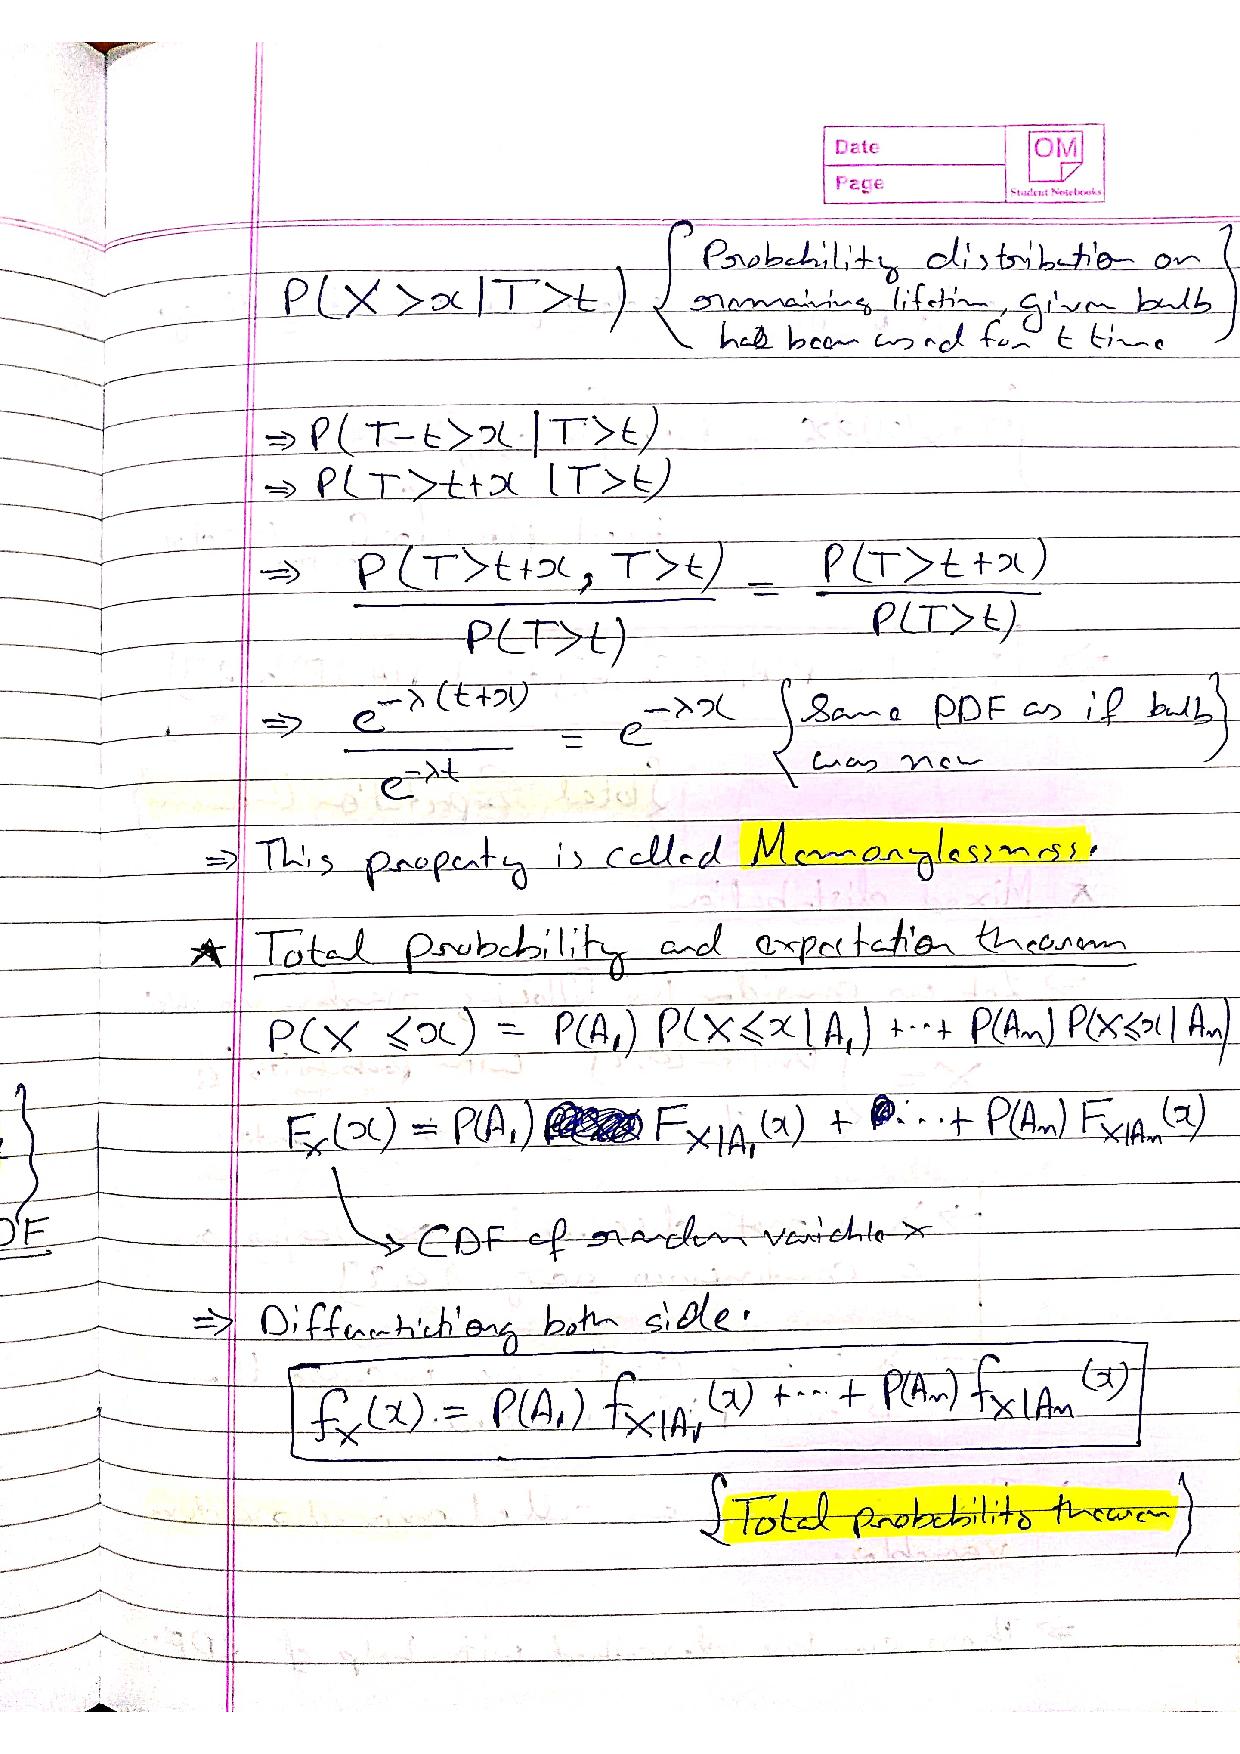 Date
Page
OM
Student Notebooks
P(X>x|T>t) {Probability distribution on
remaining lifetim, given bulb
has been used for t time}
⇒ P(T-t>x |T>t)
⇒ P(T>t+x |T>t)
⇒ P(T>t+x, T>t) / P(T>t) = P(T>t+x) / P(T>t)
⇒ e^{-λ(t+x)} / e^{-λt} = e^{-λx} {Same PDF as if bulb
was new}
⇒ This property is called Memorylessness.
★ Total probability and expectation theorem
P(X ≤ x) = P(A₁) P(X≤x|A₁) + ... + P(Aₙ) P(X≤x|Aₙ)
F_X(x) = P(A₁) F_{X|A₁}(x) + ... + P(Aₙ) F_{X|Aₙ}(x)
→ CDF of random variable x
DF
⇒ Differentiationg both side.
f_X(x) = P(A₁) f_{X|A₁}(x) + ... + P(Aₙ) f_{X|Aₙ}(x)
{Total probability theorem}